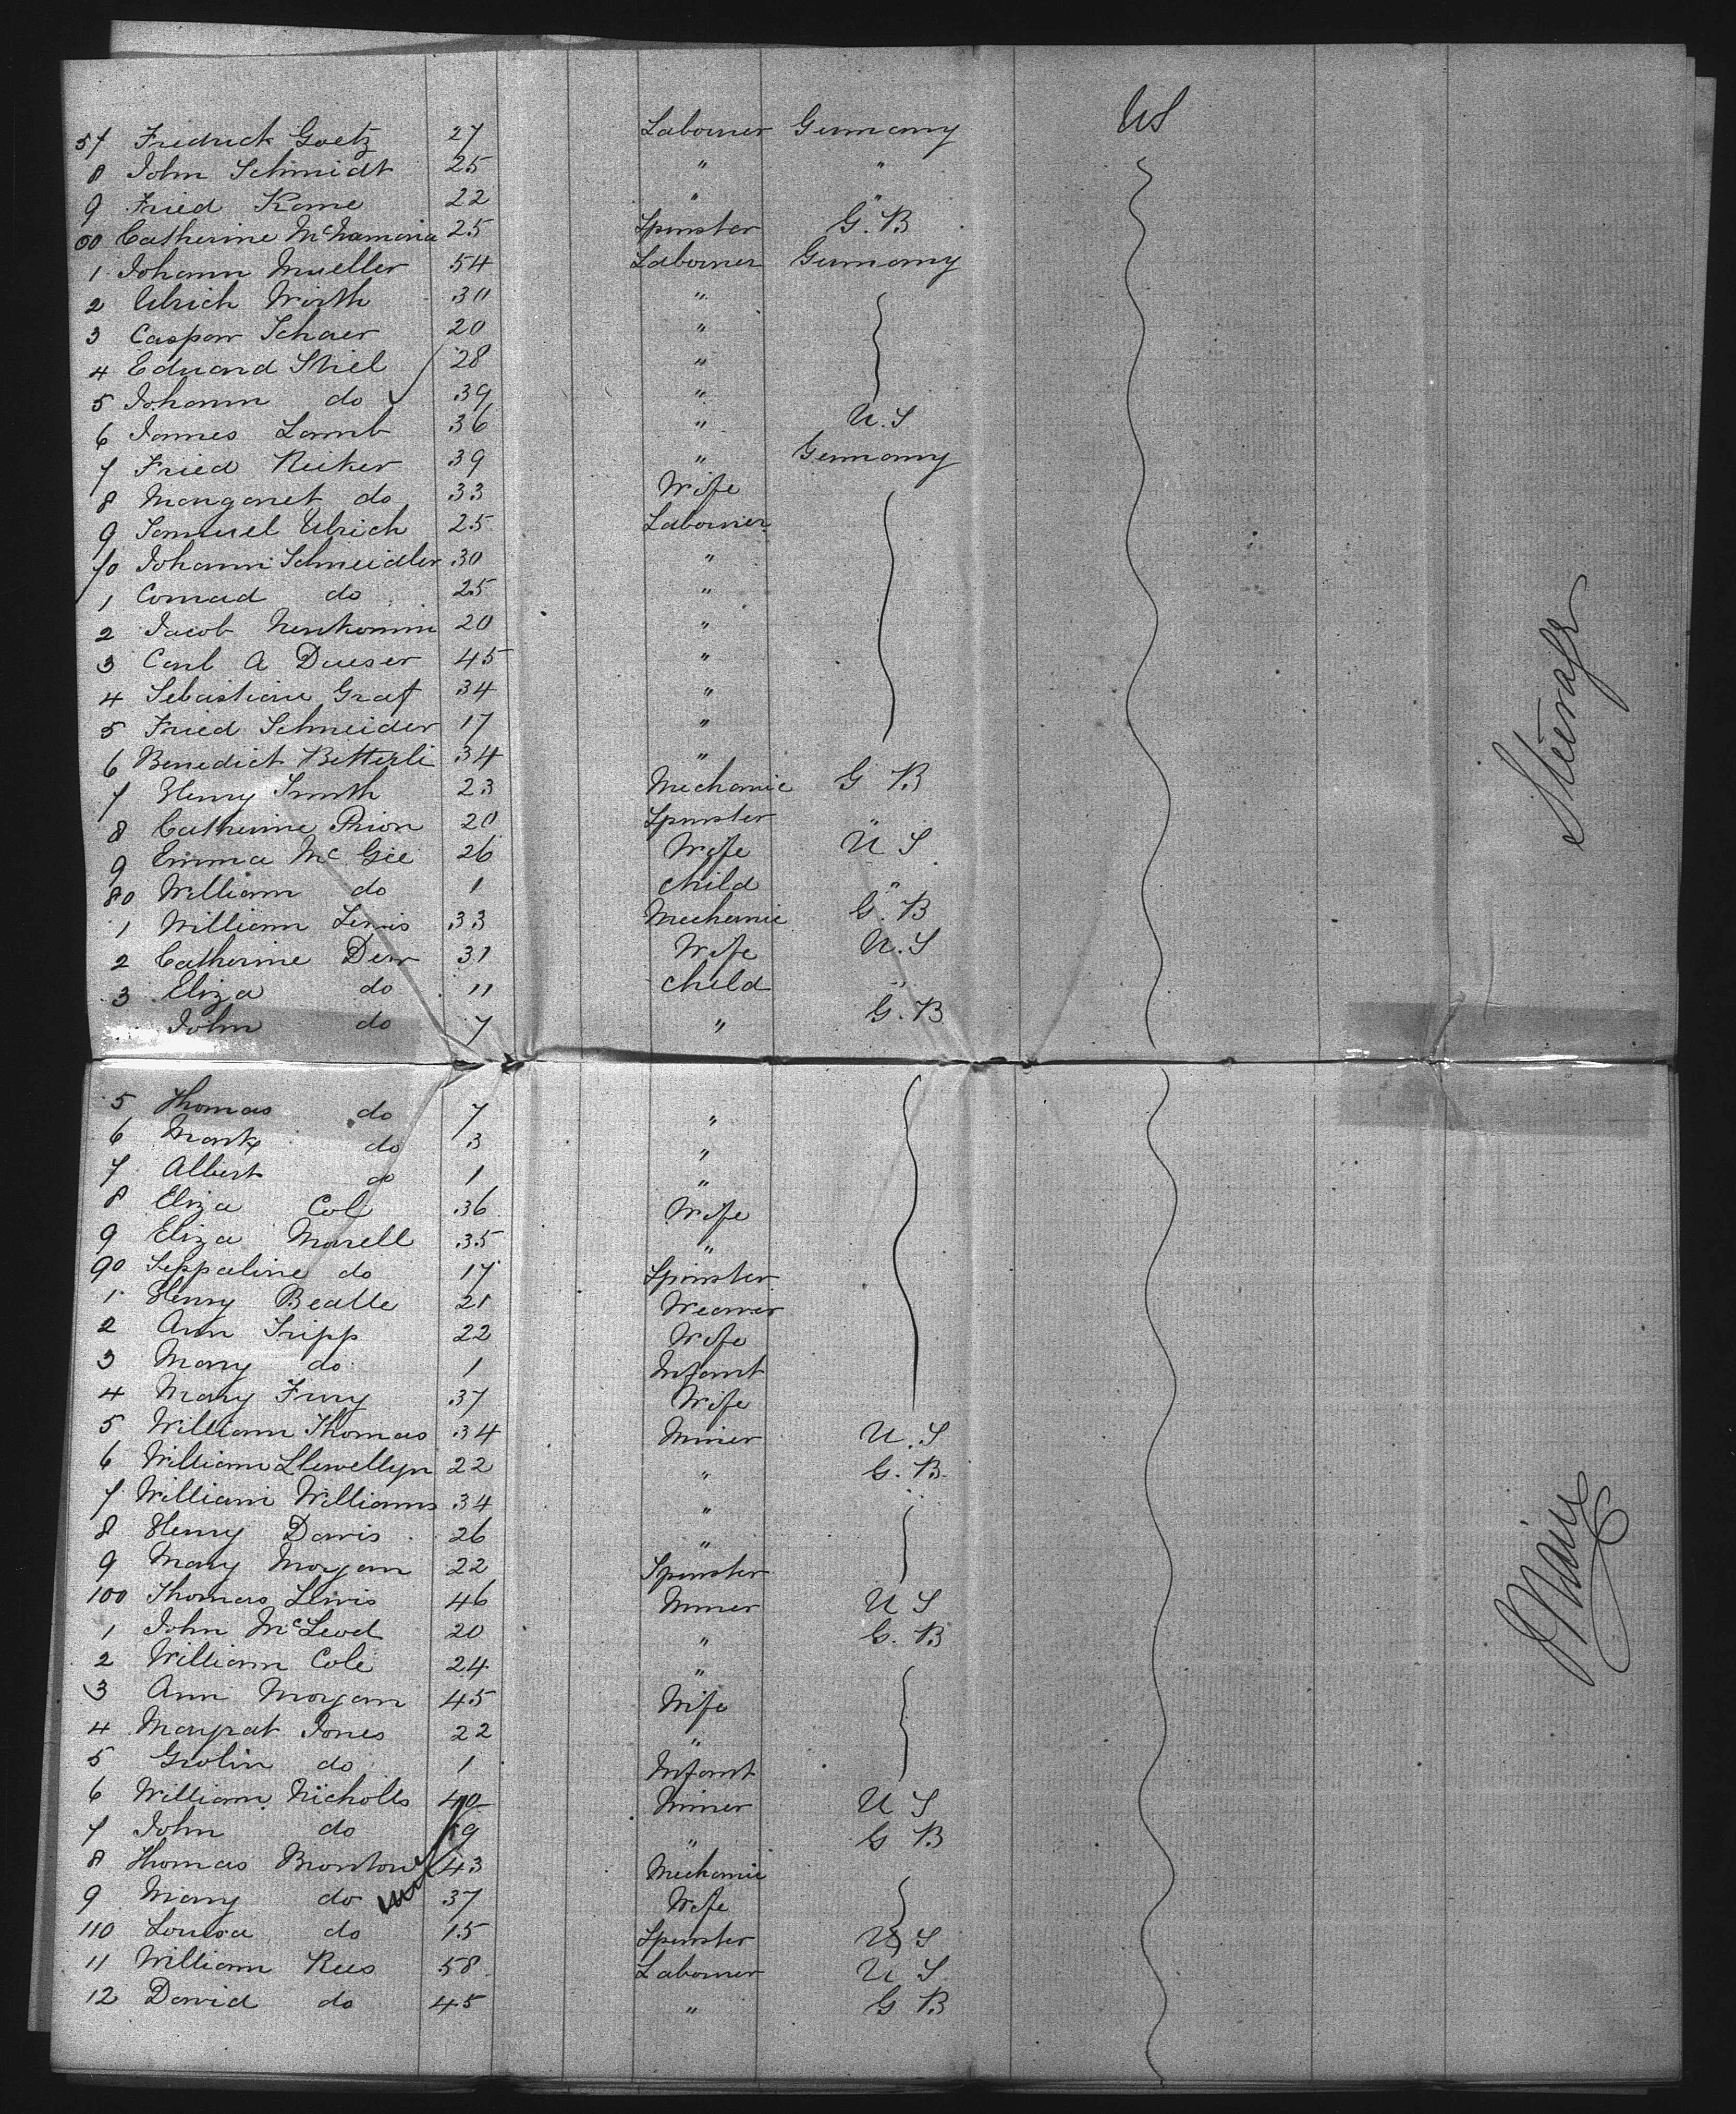 US
57 Fredrick Goetz 27 Labourer Germany
8 John Schmidt 25 " "
9 Fried Kame 22 " "
60 Catherine McNamara 25 Spinster G.B
1 Johann Mueller 54 Labourer Germany
2 Ulrich Wirth 30 "
3 Caspar Schaer 20 "
4 Eduard Stiel 28 "
5 Johann do 39 "
6 James Lamb 36 " U.S
7 Fried Reiker 39 " Germany
8 Margaret do 33 Wife
9 Samuel Ulrich 25 Labourer
70 Johann Schneidler 30 "
1 Conrad do 25 "
2 Jacob Neukomm 20 "
3 Carl A Dueser 45 "
4 Sebastian Graf 34 "
5 Fried Schneider 17 "
6 Benedict Bitterli 34 "
7 Henry Smith 23 Mechanic G B
8 Catherine Prior 20 Spinster "
9 Emma McGee 26 Wife U S
80 William do 1 child "
1 William Lewis 33 Mechanic G.B
2 Catherine Dew 31 Wife U.S
3 Eliza do 11 child "
John do 7 " G.B
Steerage
5 Thomas do 7 "
6 Mark do 3 "
7 Albert do 1 "
8 Eliza Col 36 Wife
9 Eliza Morell 35 "
90 Seppaline do 17 Spinster
1 Henry Beatte 21 Weaver
2 Ann Tripp 22 Wife
3 Mary do 1 Infant
4 Mary Fury 37 Wife
5 William Thomas 34 Miner U.S
6 William Llewellyn 22 " G.B
7 William Williams 34 "
8 Henry Davis 26 "
9 Mary Morgan 22 Spinster
100 Thomas Lewis 46 Miner U S
1 John McLeod 20 " G.B
2 William Cole 24 "
3 Ann Morgan 45 Wife
4 Margrat Jones 22 "
5 Grolin do 1 Infant
6 William Nicholls 40 Miner U S
7 John do 19 " G B
8 Thomas Bronton 43 Mechanic
9 Mary do 37 Wife
110 Louisa do 15 Spinster U S
11 William Rees 58 Labourer U S
12 David do 45 " G B
Main